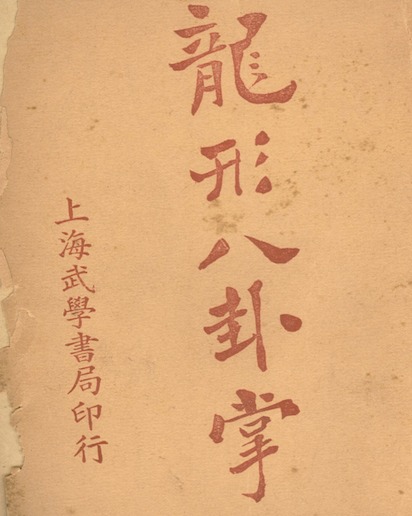 龍形八卦掌
上海武學書局印行